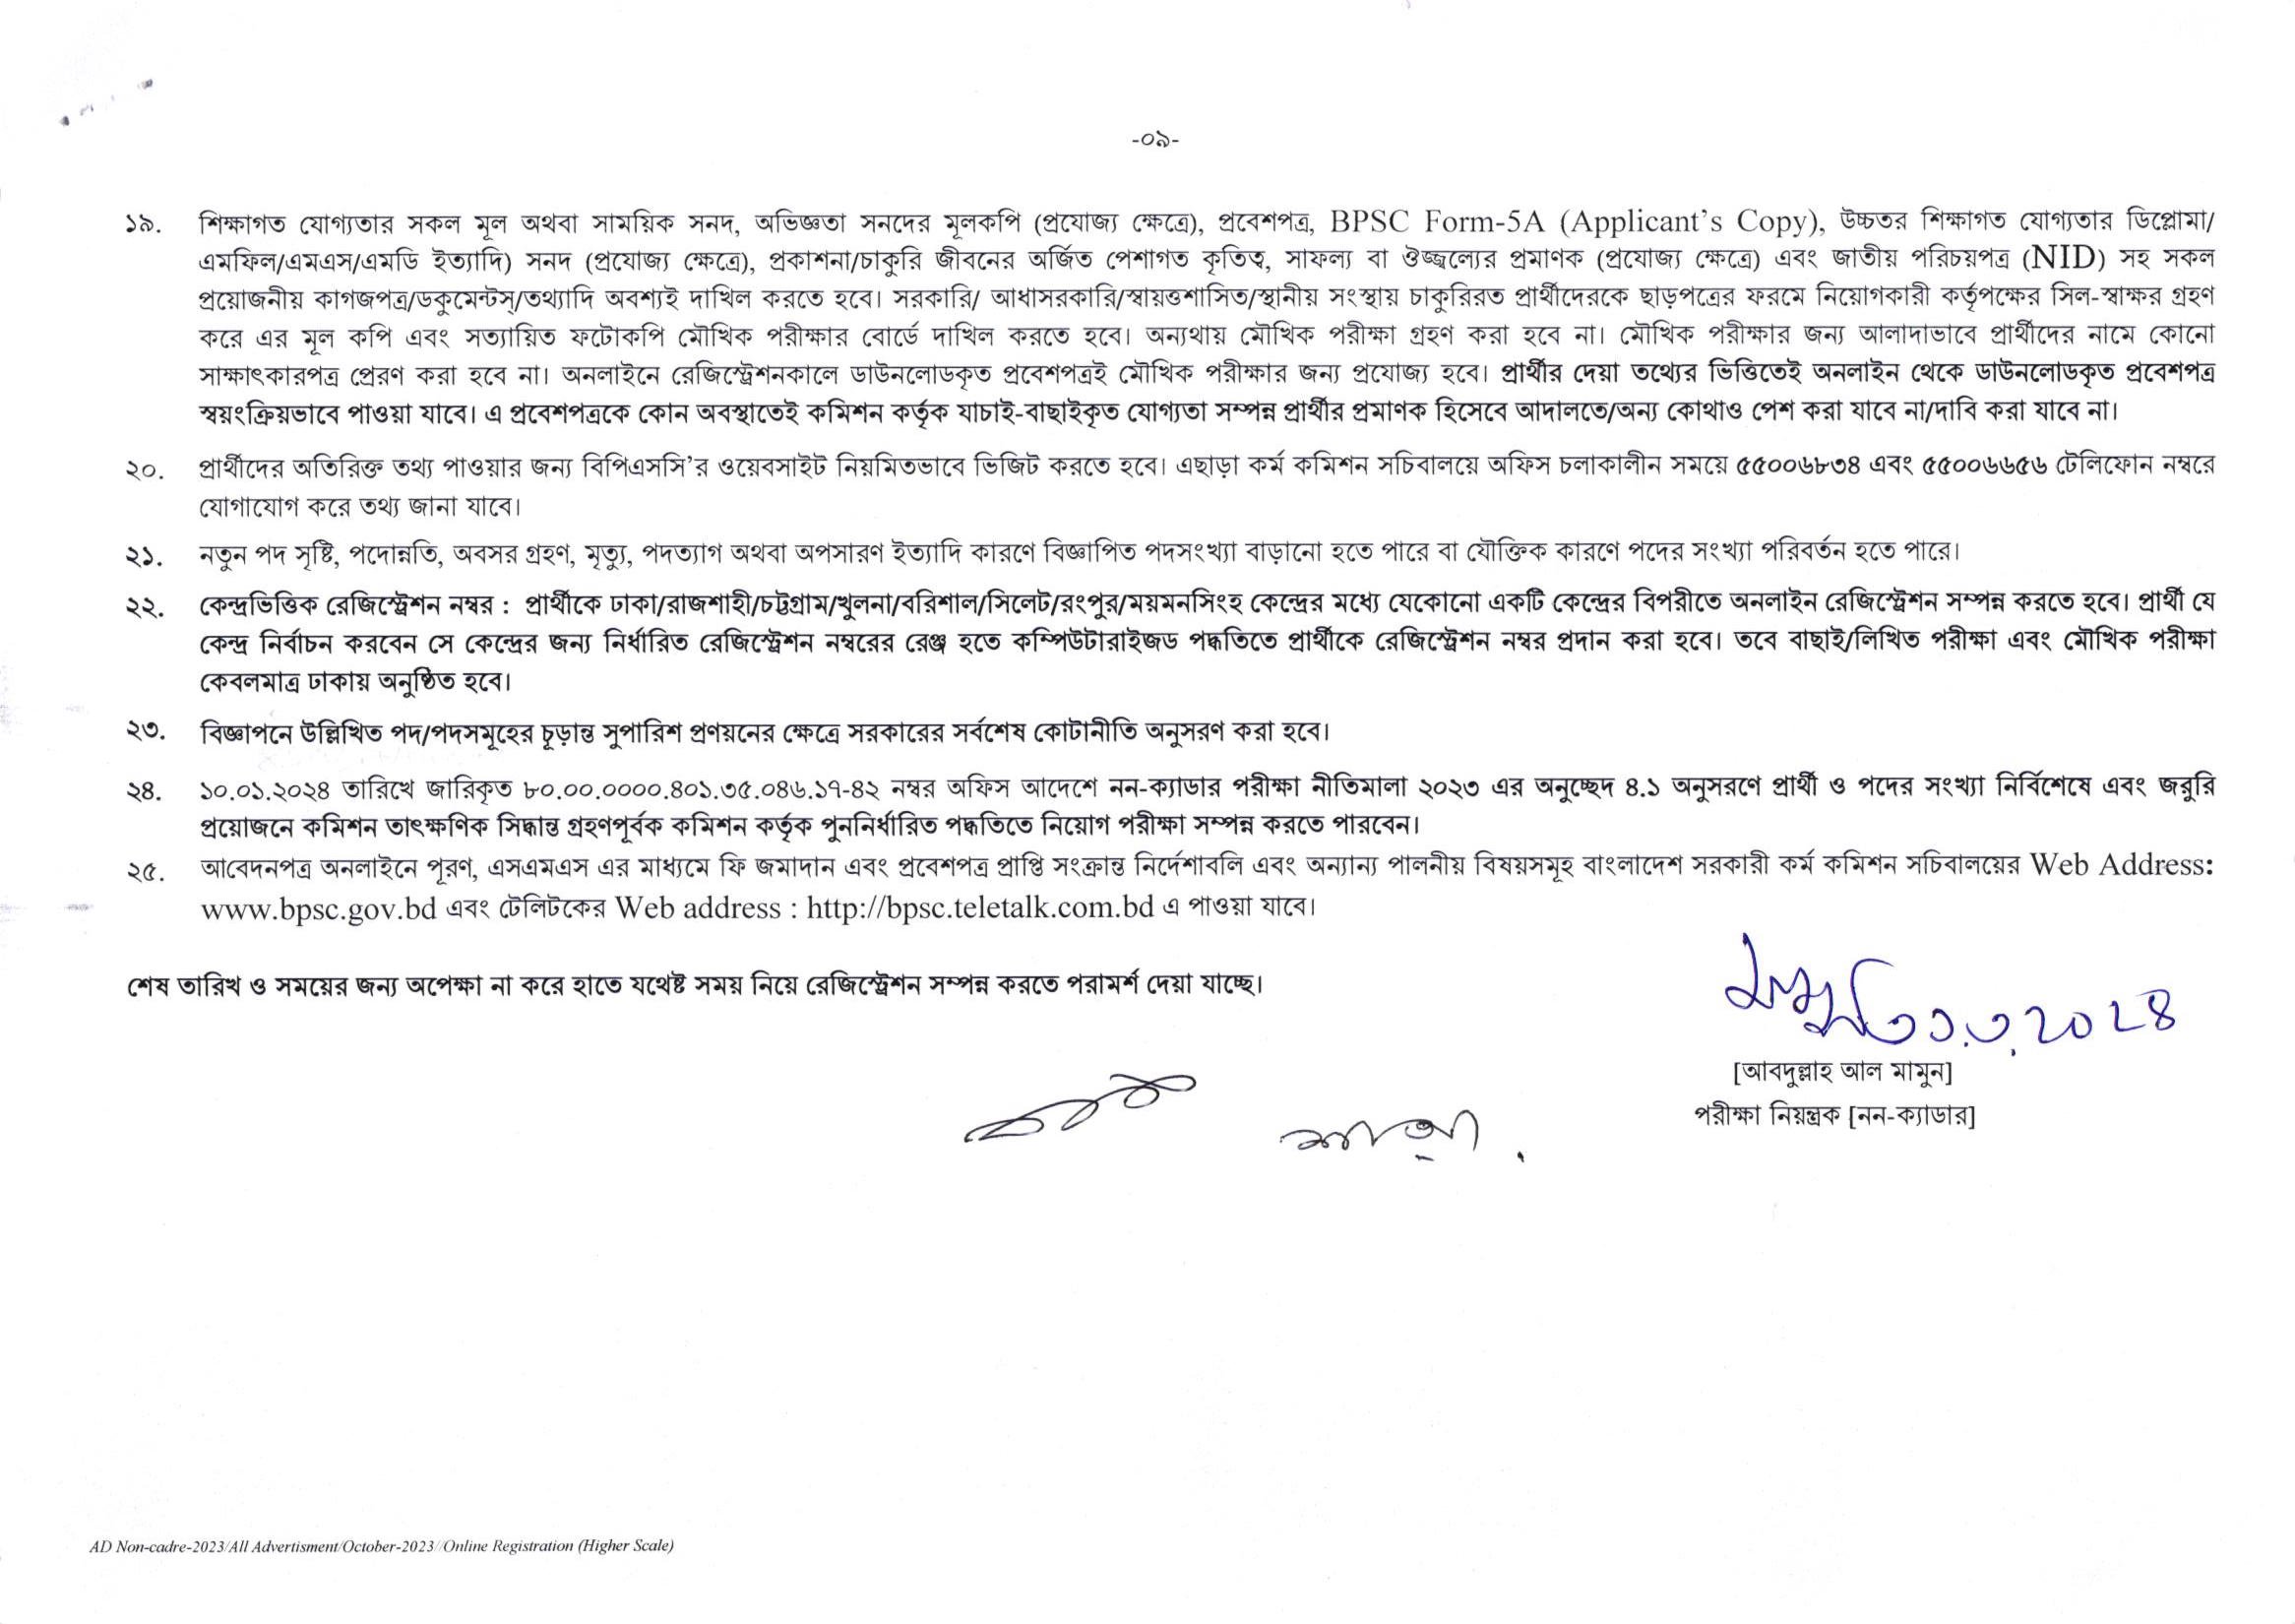 -০৯-
১৯. শিক্ষাগত যোগ্যতার সকল মূল অথবা সাময়িক সনদ, অভিজ্ঞতা সনদের মূলকপি (প্রযোজ্য ক্ষেত্রে), প্রবেশপত্র, BPSC Form-5A (Applicant’s Copy), উচ্চতর শিক্ষাগত যোগ্যতার ডিপ্লোমা/
এমফিল/এমএস/এমডি ইত্যাদি) সনদ (প্রযোজ্য ক্ষেত্রে), প্রকাশনা/চাকুরি জীবনের অর্জিত পেশাগত কৃতিত্ব, সাফল্য বা ঔজ্জ্বল্যের প্রমাণক (প্রযোজ্য ক্ষেত্রে) এবং জাতীয় পরিচয়পত্র (NID) সহ সকল
প্রয়োজনীয় কাগজপত্র/ডকুমেন্টস্/তথ্যাদি অবশ্যই দাখিল করতে হবে। সরকারি/ আধাসরকারি/স্বায়ত্তশাসিত/স্থানীয় সংস্থায় চাকুরিরত প্রার্থীদেরকে ছাড়পত্রের ফরমে নিয়োগকারী কর্তৃপক্ষের সিল-স্বাক্ষর গ্রহণ
করে এর মূল কপি এবং সত্যায়িত ফটোকপি মৌখিক পরীক্ষার বোর্ডে দাখিল করতে হবে। অন্যথায় মৌখিক পরীক্ষা গ্রহণ করা হবে না। মৌখিক পরীক্ষার জন্য আলাদাভাবে প্রার্থীদের নামে কোনো
সাক্ষাৎকারপত্র প্রেরণ করা হবে না। অনলাইনে রেজিস্ট্রেশনকালে ডাউনলোডকৃত প্রবেশপত্রই মৌখিক পরীক্ষার জন্য প্রযোজ্য হবে। প্রার্থীর দেয়া তথ্যের ভিত্তিতেই অনলাইন থেকে ডাউনলোডকৃত প্রবেশপত্র
স্বয়ংক্রিয়ভাবে পাওয়া যাবে। এ প্রবেশপত্রকে কোন অবস্থাতেই কমিশন কর্তৃক যাচাই-বাছাইকৃত যোগ্যতা সম্পন্ন প্রার্থীর প্রমাণক হিসেবে আদালতে/অন্য কোথাও পেশ করা যাবে না/দাবি করা যাবে না।
২০. প্রার্থীদের অতিরিক্ত তথ্য পাওয়ার জন্য বিপিএসসি’র ওয়েবসাইট নিয়মিতভাবে ভিজিট করতে হবে। এছাড়া কর্ম কমিশন সচিবালয়ে অফিস চলাকালীন সময়ে ৫৫০০৬৮৩৪ এবং ৫৫০০৬৬৫৬ টেলিফোন নম্বরে
যোগাযোগ করে তথ্য জানা যাবে।
২১. নতুন পদ সৃষ্টি, পদোন্নতি, অবসর গ্রহণ, মৃত্যু, পদত্যাগ অথবা অপসারণ ইত্যাদি কারণে বিজ্ঞাপিত পদসংখ্যা বাড়ানো হতে পারে বা যৌক্তিক কারণে পদের সংখ্যা পরিবর্তন হতে পারে।
২২. কেন্দ্রভিত্তিক রেজিস্ট্রেশন নম্বর : প্রার্থীকে ঢাকা/রাজশাহী/চট্টগ্রাম/খুলনা/বরিশাল/সিলেট/রংপুর/ময়মনসিংহ কেন্দ্রের মধ্যে যেকোনো একটি কেন্দ্রের বিপরীতে অনলাইন রেজিস্ট্রেশন সম্পন্ন করতে হবে। প্রার্থী যে
কেন্দ্র নির্বাচন করবেন সে কেন্দ্রের জন্য নির্ধারিত রেজিস্ট্রেশন নম্বরের রেঞ্জ হতে কম্পিউটারাইজড পদ্ধতিতে প্রার্থীকে রেজিস্ট্রেশন নম্বর প্রদান করা হবে। তবে বাছাই/লিখিত পরীক্ষা এবং মৌখিক পরীক্ষা
কেবলমাত্র ঢাকায় অনুষ্ঠিত হবে।
২৩. বিজ্ঞাপনে উল্লিখিত পদ/পদসমূহের চূড়ান্ত সুপারিশ প্রণয়নের ক্ষেত্রে সরকারের সর্বশেষ কোটানীতি অনুসরণ করা হবে।
২৪. ১০.০১.২০২৪ তারিখে জারিকৃত ৮০.০০.০০০০.৪০১.৩৫.০৪৬.১৭-৪২ নম্বর অফিস আদেশে নন-ক্যাডার পরীক্ষা নীতিমালা ২০২৩ এর অনুচ্ছেদ ৪.১ অনুসরণে প্রার্থী ও পদের সংখ্যা নির্বিশেষে এবং জরুরি
প্রয়োজনে কমিশন তাৎক্ষণিক সিদ্ধান্ত গ্রহণপূর্বক কমিশন কর্তৃক পুননির্ধারিত পদ্ধতিতে নিয়োগ পরীক্ষা সম্পন্ন করতে পারবেন।
২৫. আবেদনপত্র অনলাইনে পূরণ, এসএমএস এর মাধ্যমে ফি জমাদান এবং প্রবেশপত্র প্রাপ্তি সংক্রান্ত নির্দেশাবলি এবং অন্যান্য পালনীয় বিষয়সমূহ বাংলাদেশ সরকারী কর্ম কমিশন সচিবালয়ের Web Address:
www.bpsc.gov.bd এবং টেলিটকের Web address : http://bpsc.teletalk.com.bd এ পাওয়া যাবে।
শেষ তারিখ ও সময়ের জন্য অপেক্ষা না করে হাতে যথেষ্ট সময় নিয়ে রেজিস্ট্রেশন সম্পন্ন করতে পরামর্শ দেয়া যাচ্ছে।
[আবদুল্লাহ আল মামুন]
পরীক্ষা নিয়ন্ত্রক [নন-ক্যাডার]
AD Non-cadre-2023/All Advertisment/October-2023//Online Registration (Higher Scale)